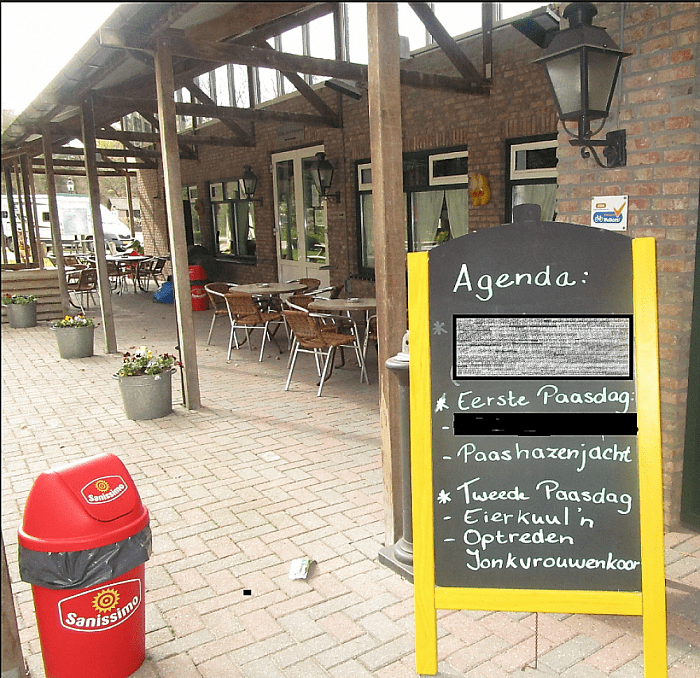 Agenda:
* Eerste Paasdag:
-
- Paashazenjacht
* Tweede Paasdag
- Eierkuul'n
- Optreden
Jonkvrouwenkoor
Sanissimo
Sanissimo